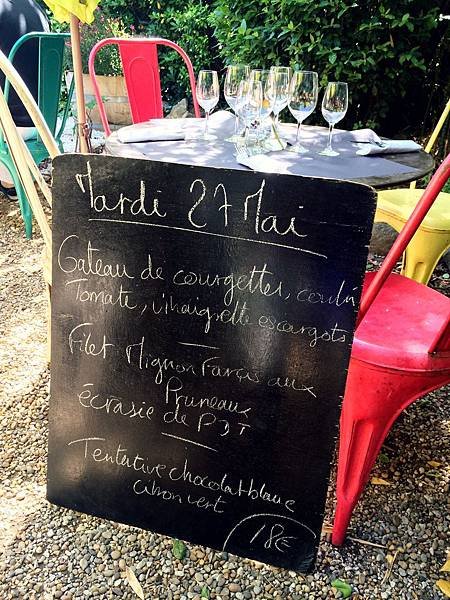 Mardi 27 Mai
Gateau de courgettes, coulis
Tomate, vinaigrette escargots
Filet Mignon Farcis aux
Pruneaux
écrasie de PDT
Tentative chocolat blanc
citron vert
18€